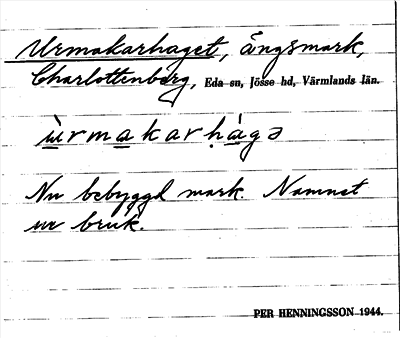 Urmakarhaget, ängsmark,
Charlottenberg, Eda sn, Jösse hd, Värmlands län.
ùrmakarhágə
Nu bebyggd mark. Namnet
ur bruk.
PER HENNINGSSON 1944.